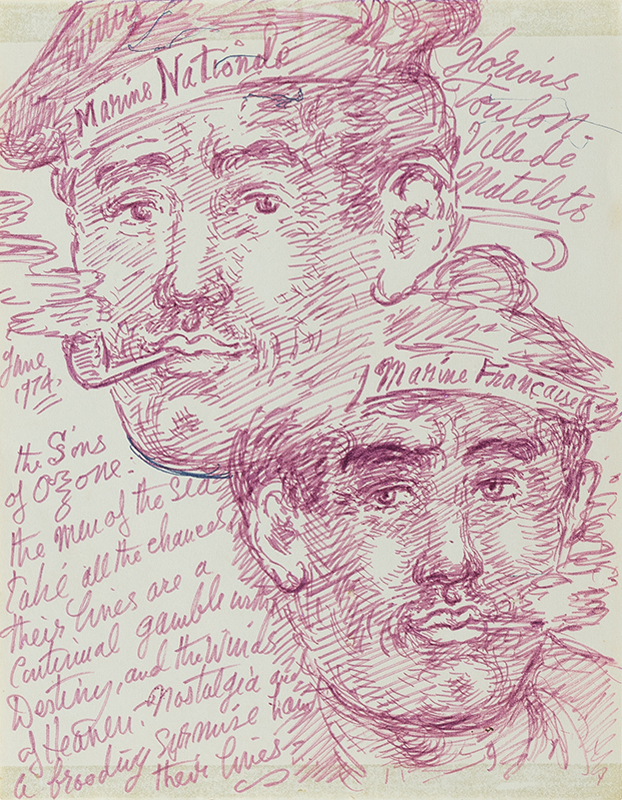 Marine Nationale
Glorious
Toulon-
Ville de
Matelots
Marine Française
June
1974.
the Sons
of Ozone:
the men of the sea
take all the chances,
their lives are a
continual gamble with
Destiny, and the Winds
of Heaven. Nostalgia and
a brooding surmise haunt
their lives-